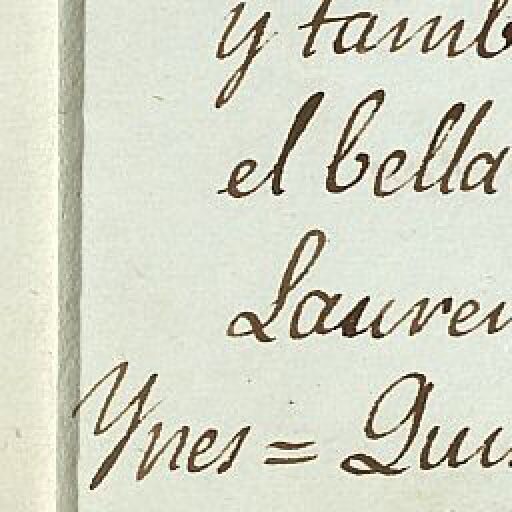 y tamb
el bella
Lauren
Ynes = Quis